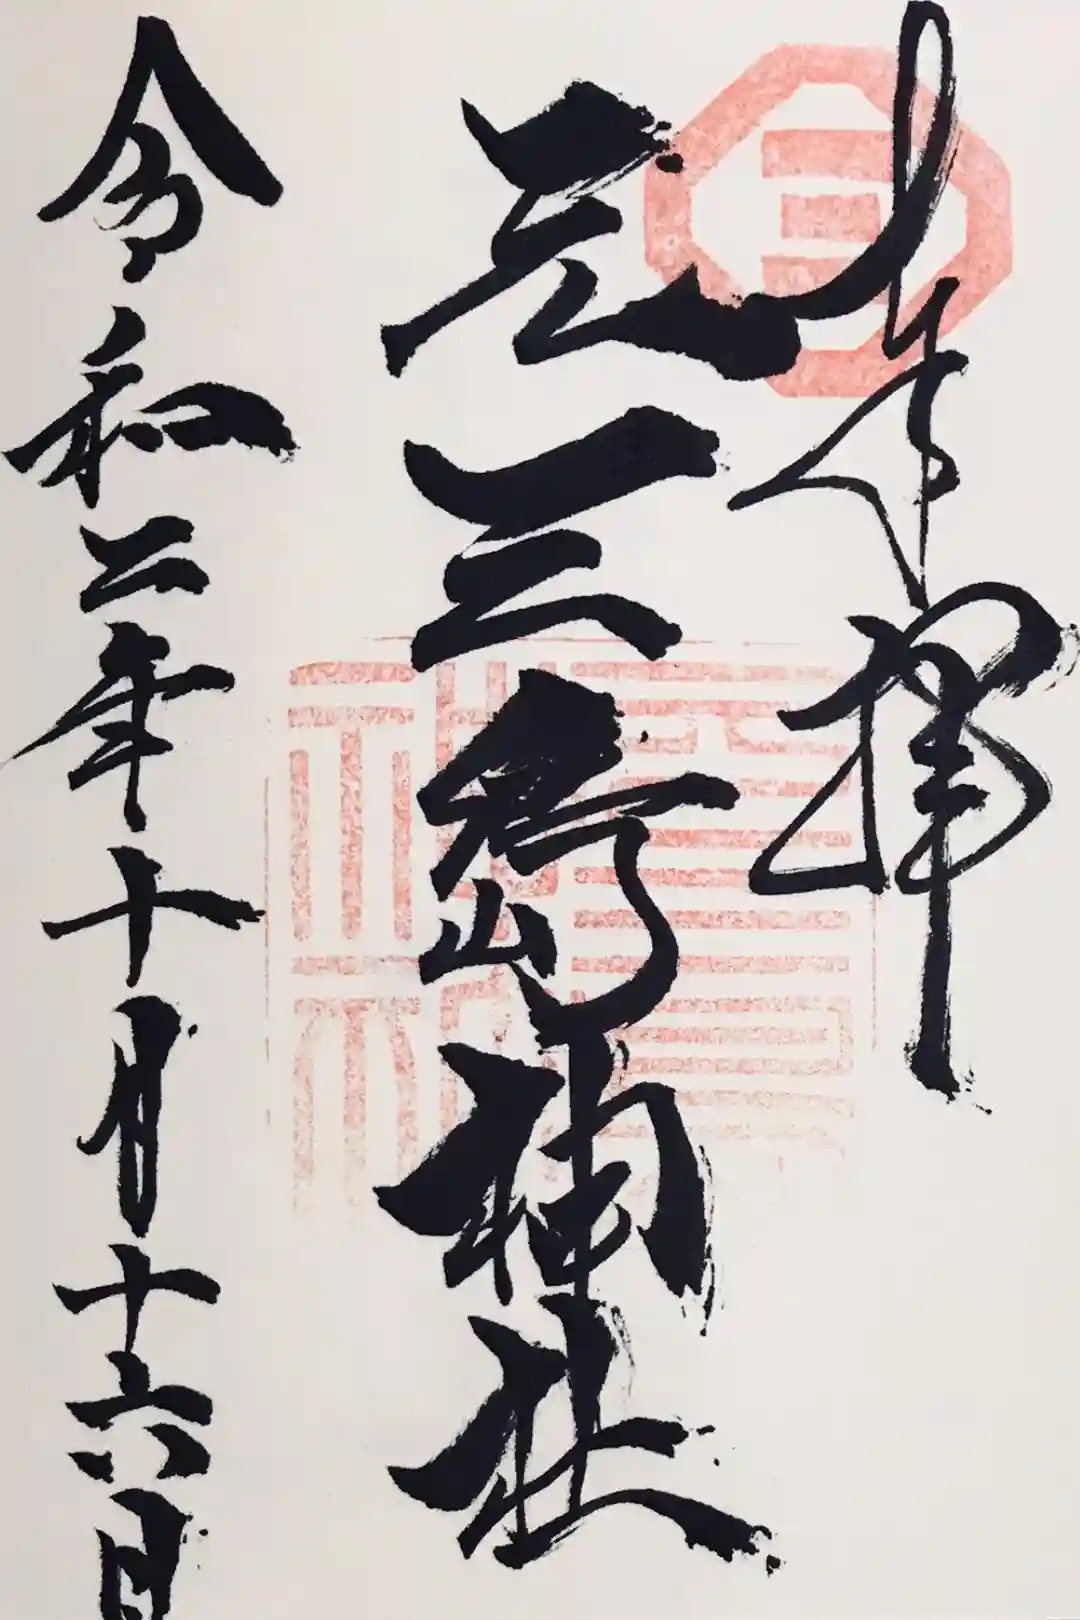 奉拝
元三島神社
令和二年十月十六日
三